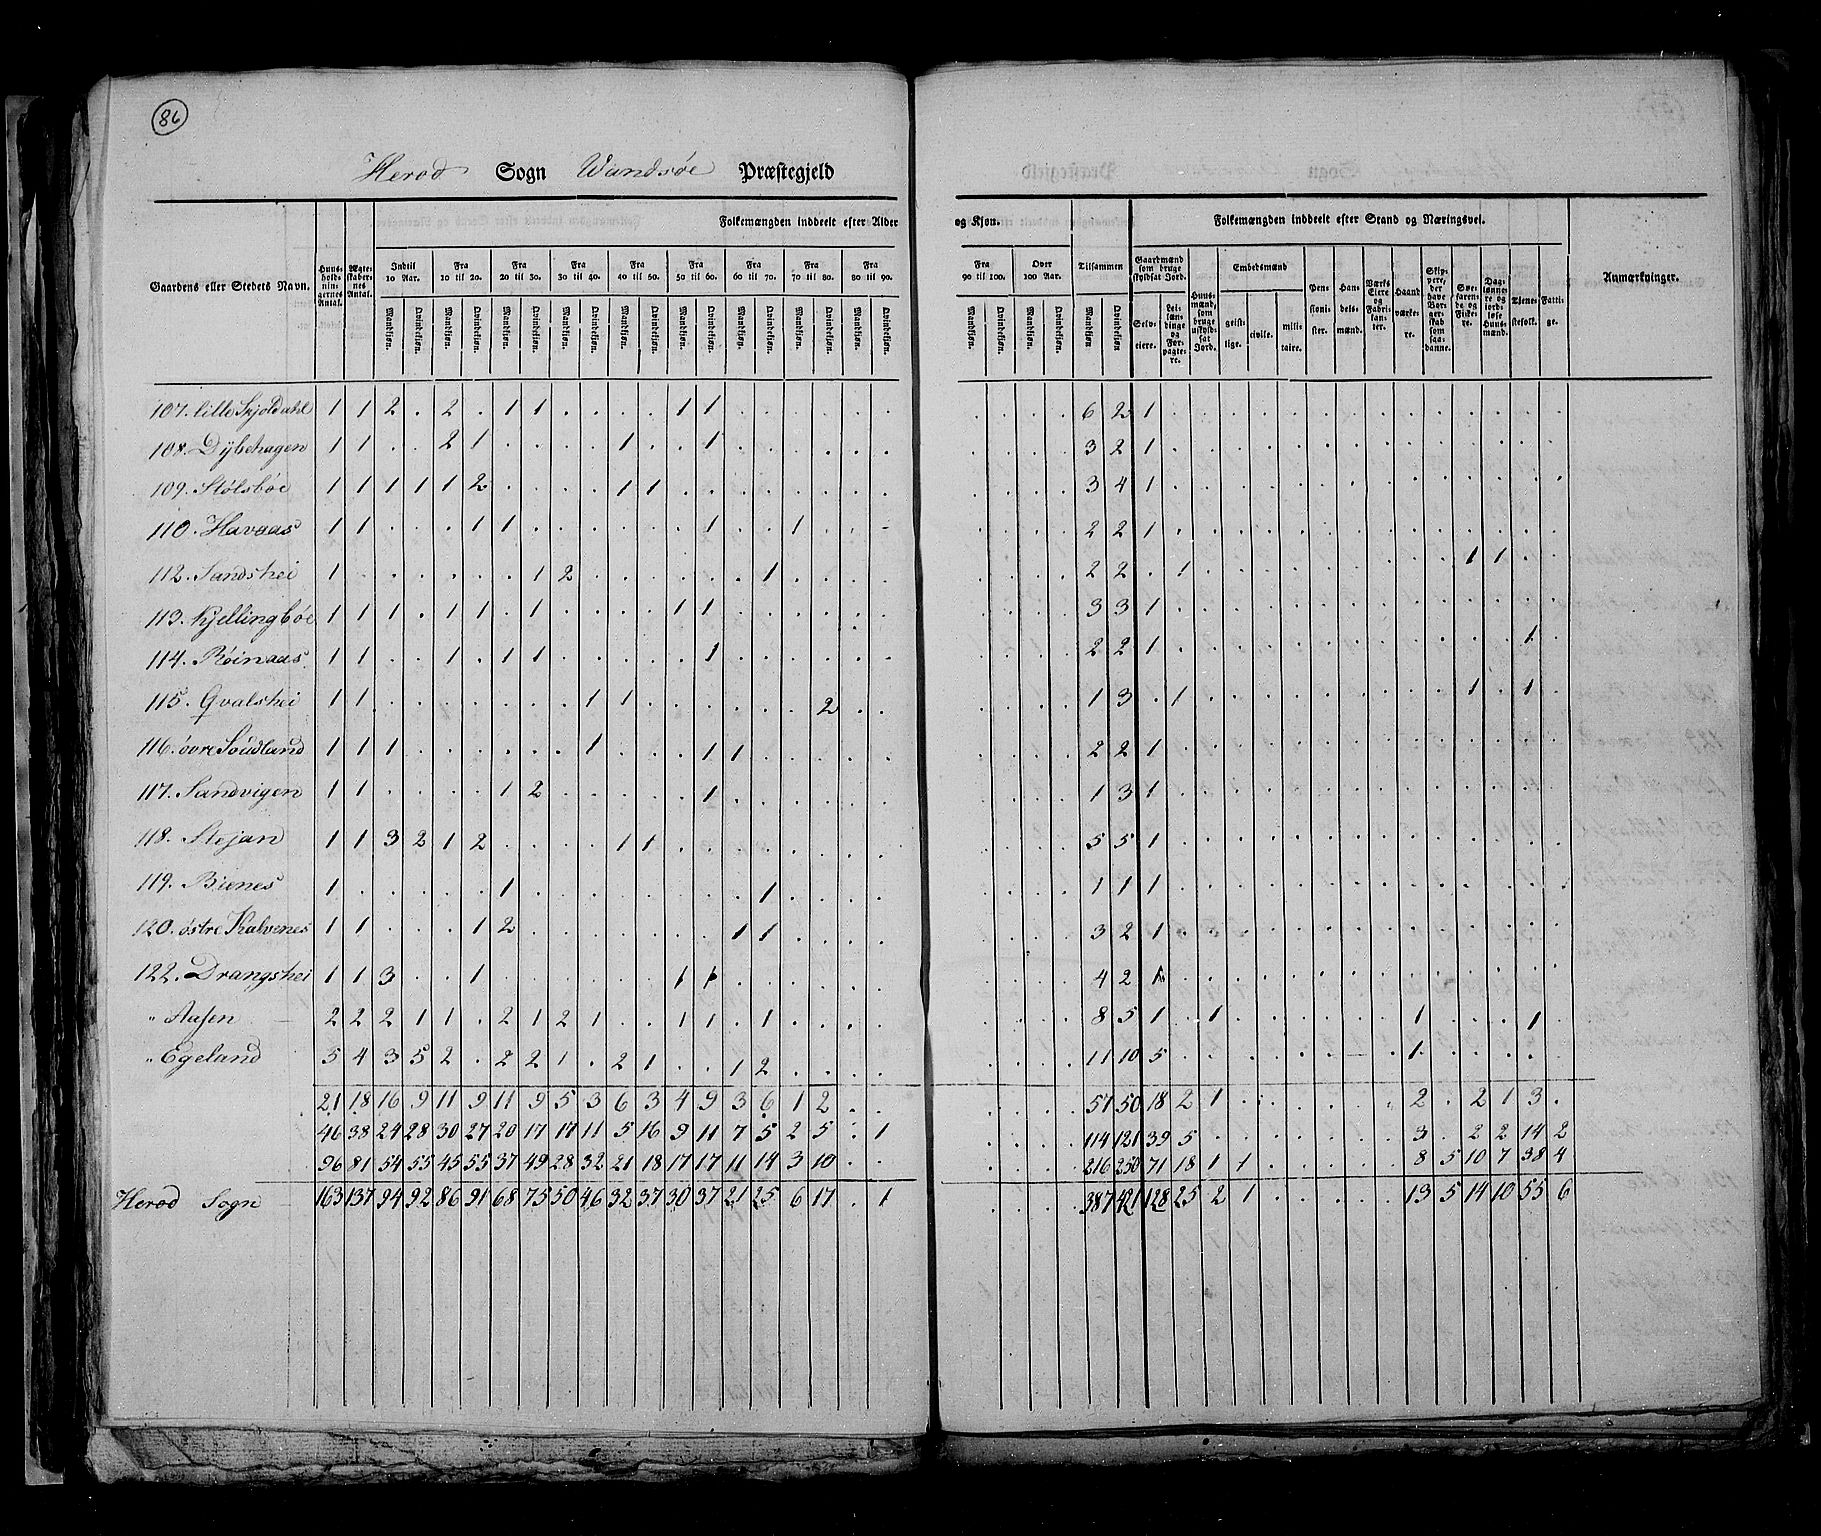 86
Herod Sogn Wandsøe Præstegjeld
Folkemængden inddeelt efter Alder og Kjøn. Folkemængden inddeelt efter Stand og Næringsvei.
Gaardens eller Stedets Navn. Huusholdningernes Antal. Ægteskabernes Antal. Indtil 10 Aar. Fra 10 til 20. Fra 20 til 30. Fra 30 til 40. Fra 40 til 50. Fra 50 til 60. Fra 60 til 70. Fra 70 til 80. Fra 80 til 90. Fra 90 til 100. Over 100 Aar. Tilsammen Gaardmænd som bruge skyldsat Jord. Huusmænd, som bruge uskyldsat Jord. Embedsmænd Pensionister. Handelsmænd. Værks Eiere og Fabrikanter. Haandværkere. Skippere, der have Borgerskab som saadanne. Søefarende og Fiskere. Daglønnere og jordløse Huusmænd. Tjenestefolk. Fattige. Anmærkninger.
Mandkjøn. Qvindekjøn. Mandkjøn. Qvindekjøn. Mandkjøn. Qvindekjøn. Mandkjøn. Qvindekjøn. Mandkjøn. Qvindekjøn. Mandkjøn. Qvindekjøn. Mandkjøn. Qvindekjøn. Mandkjøn. Qvindekjøn. Mandkjøn. Qvindekjøn. Mandkjøn. Qvindekjøn. Mandkjøn. Qvindekjøn. Mandkjøn Qvindekjøn Selveiere. Leilændinge og Forpagtere. geistlige. civile. militaire.
107. lille Skjoldahl 1 1 2 . 2 . 1 1 . . . . 1 1 . . . . . . . . . . 6 2 1 . . . . . . . . . . . . . .
108. Dybehagen 1 1 . . 2 1 . . . . 1 . . 1 . . . . . . . . . . 3 2 1 . . . . . . . . . . . . . .
109. Stølsbøe 1 1 1 1 1 2 . . . . 1 1 . . . . . . . . . . . . 3 4 1 . . . . . . . . . . . . . .
110. Havaas 1 1 . . . 1 1 . . . . . . 1 . . 1 . . . . . . . 2 2 1 . . . . . . . . . . . . . .
112. Sandshei 1 . . . . . . 1 2 . . . . . . 1 . . . . . . . . 2 2 . 1 . . . . . . . . . 1 1 . .
113. Kjellingbøe 1 1 1 . 1 1 . 1 . . . . 1 1 . . . . . . . . . . 3 3 1 . . . . . . . . . . . . . .
114. Röinaas. 1 1 . . 1 . 1 1 . . . . . 1 . . . . . . . . . . 2 2 1 . . . . . . . . . . . . 1 .
115. Qvalshei 1 1 . . . . . . . 1 1 . . . . . . 2 . . . . . . 1 3 . 1 . . . . . . . . . 1 . 1 .
116. øvre Söudland 1 1 1 . . . . . . 1 . . . 1 1 . . . . . . . . . 2 2 1 . . . . . . . . . . . . . .
117. Sandvigen 1 1 . . . . 1 2 . . . . . 1 . . . . . . . . . . 1 3 1 . . . . . . . . . . . . . .
118. Stejan 1 1 3 2 1 2 . . . . 1 1 . . . . . . . . . . . . 5 5 1 . . . . . . . . . . . . . .
119. Bienes 1 . . . . . 1 . . . . . . . . 1 . . . . . . . . 1 1 1 . . . . . . . . . . . . . .
120. østre Kalvenes 1 1 . . . 1 2 . . . . . . . 1 1 . . . . . . . . 3 2 1 . . . . . . . . . . . . . .
122. Drangshei 1 1 3 . . 1 . . . . . . 1 1 . . . . . . . . . . 4 2 1 . . . . . . . . . . . . . .
" Aasen 2 2 2 1 1 . 2 1 2 1 . . 1 1 . 1 . . . . . . . . 8 5 1 . 1 . . . . . . 1 . . . 1 .
" Egeland 5 4 3 5 2 . 2 2 1 . 2 1 . . 1 2 . . . . . . . . 11 10 5 . . . . . . . . 1 . . . . .
21 18 16 9 11 9 11 9 5 3 6 3 4 9 3 6 1 2 . . . . . . 57 50 18 2 1 . . . . . . 2 . 2 1 3 .
46 38 24 28 30 27 20 17 17 11 5 16 9 11 7 5 2 5 . 1 . . . . 114 121 39 5 . . . . . . . 3 . 2 2 14 2
96 81 54 55 45 55 37 49 28 32 21 18 17 17 11 14 3 10 . . . . . . 216 250 71 18 1 1 . . . . . 8 5 10 7 38 4
Herod Sogn 163 137 94 92 86 91 68 75 50 46 32 37 30 37 21 25 6 17 . 1 . . . . 387 421 128 25 2 1 . . . . . 13 5 14 10 55 6